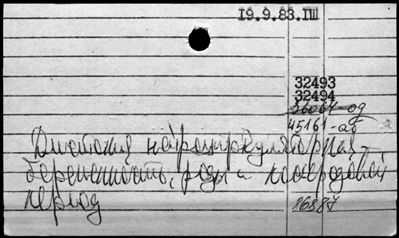 19.9.83.ПШ
32493
32494
36064-од
45161-аб
Дистония нейроциркуляторная -
беременность, роды и послеродовый
период
16887